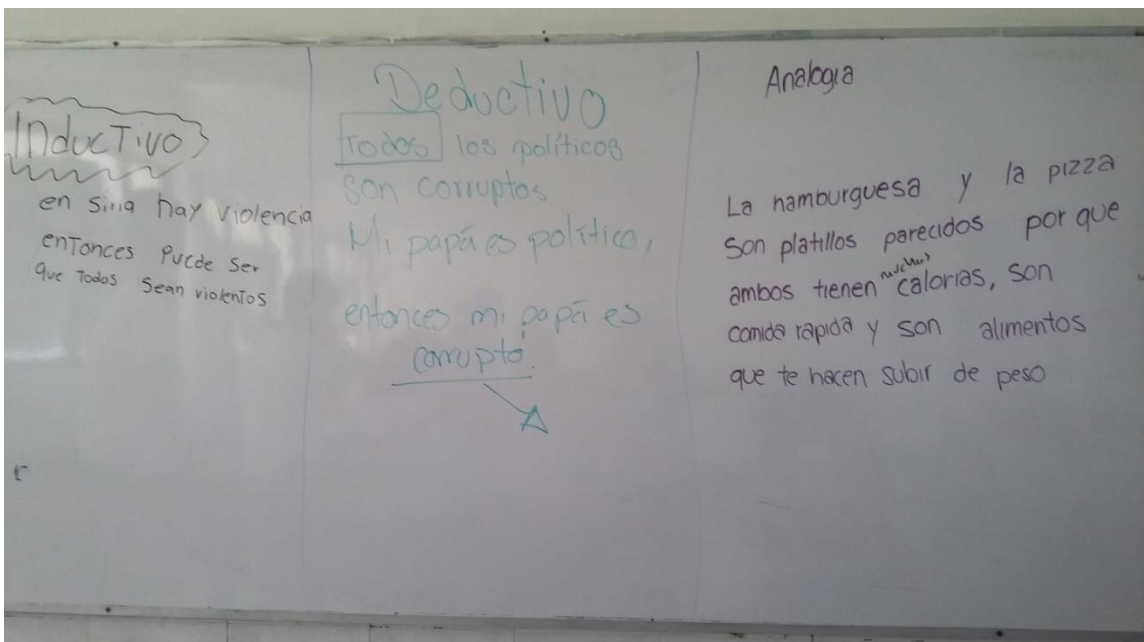 InducTivo
en Siria hay violencia
enTonces Puede Ser
que Todos Sean violenTos
r
Deductivo
Todos los políticos
son corruptos
Mi papá es político,
entonces mi papá es
corrupto.
Analogia
La hamburguesa y la pizza
Son platillos parecidos por que
muchas
ambos tienen calorias, son
comida rapida y son alimentos
que te hacen subir de peso